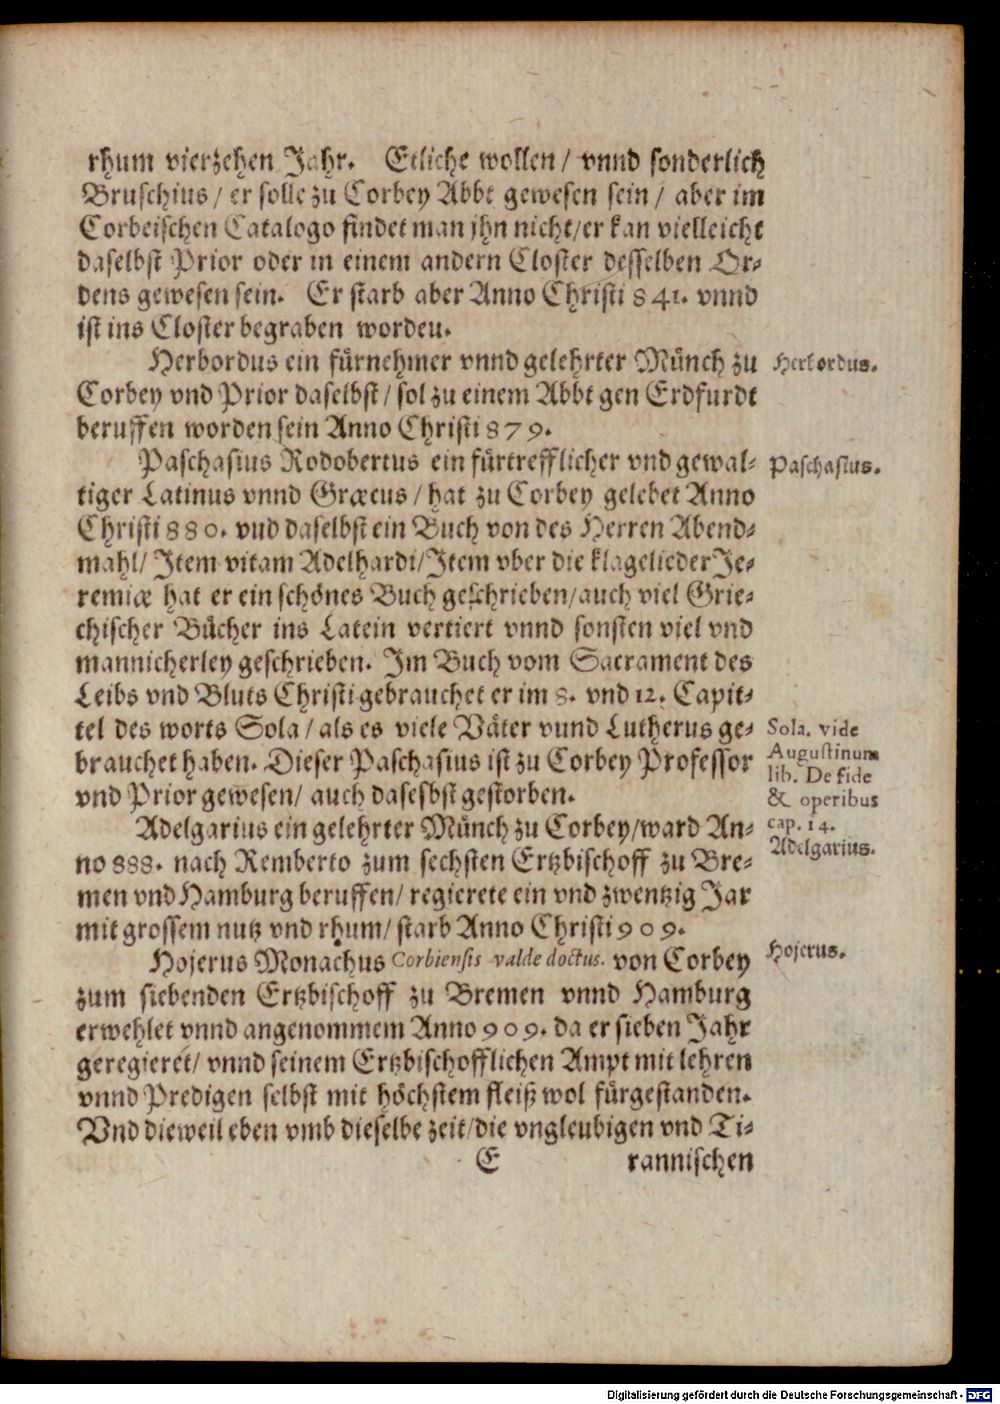 rhum vierzehen Jahr. Etliche wollen/ vnnd sonderlich
Bruschius/ er solle zu Corbey Abbt gewesen sein/ aber im
Corbeischen Catalogo findet man jhn nicht/er kan vielleicht
daselbst Prior oder in einem andern Closter desselben Or-
dens gewesen sein. Er starb aber Anno Christi 841. vnnd
ist ins Closter begraben wordeu.
Herbordus ein fürnehmer vnnd gelehrter Münch zu
Herbordus.
Corbey vnd Prior daselbst/ sol zu einem Abbt gen Erdfurdt
beruffen worden sein Anno Christi 879.
Paschasius Rodobertus ein fürtrefflicher vnd gewal-
Paschasius.
tiger Latinus vnnd Græcus/ hat zu Corbey gelebet Anno
Christi 880. vnd daselbst ein Buch von des Herren Abend-
mahl/ Item vitam Adelhardi/Item vber die klagelieder Je-
remiæ hat er ein schönes Buch geschrieben/auch viel Grie-
chischer Bücher ins Latein vertiert vnnd sonsten viel vnd
mannicherley geschrieben. Im Buch vom Sacrament des
Leibs vnd Bluts Christi gebrauchet er im 8. vnd 12. Capit-
tel des worts Sola/ als es viele Väter vnnd Lutherus ge-
brauchet haben. Dieser Paschasius ist zu Corbey Professor
vnd Prior gewesen/ auch dasesbst gestorben.
Sola. vide
Augustinum
lib. De fide
& operibus
cap. 14.
Adelgarius ein gelehrter Münch zu Corbey/ward An-
Adelgarius.
no 888. nach Remberto zum sechsten Ertzbischoff zu Bre-
men vnd Hamburg beruffen/ regierete ein vnd zwentzig Jar
mit grossem nutz vnd rhum/ starb Anno Christi 909.
Hojerus Monachus Corbiensis valde doctus. von Corbey
Hojerus.
zum siebenden Ertzbischoff zu Bremen vnnd Hamburg
erwehlet vnnd angenommem Anno 909. da er sieben Jahr
geregieret/ vnnd seinem Ertzbischofflichen Ampt mit lehren
vnnd Predigen selbst mit höchstem fleiß wol fürgestanden.
Vnd dieweil eben vmb dieselbe zeit/die vngleubigen vnd Ti-
E rannischen
Digitalisierung gefördert durch die Deutsche Forschungsgemeinschaft - DFG